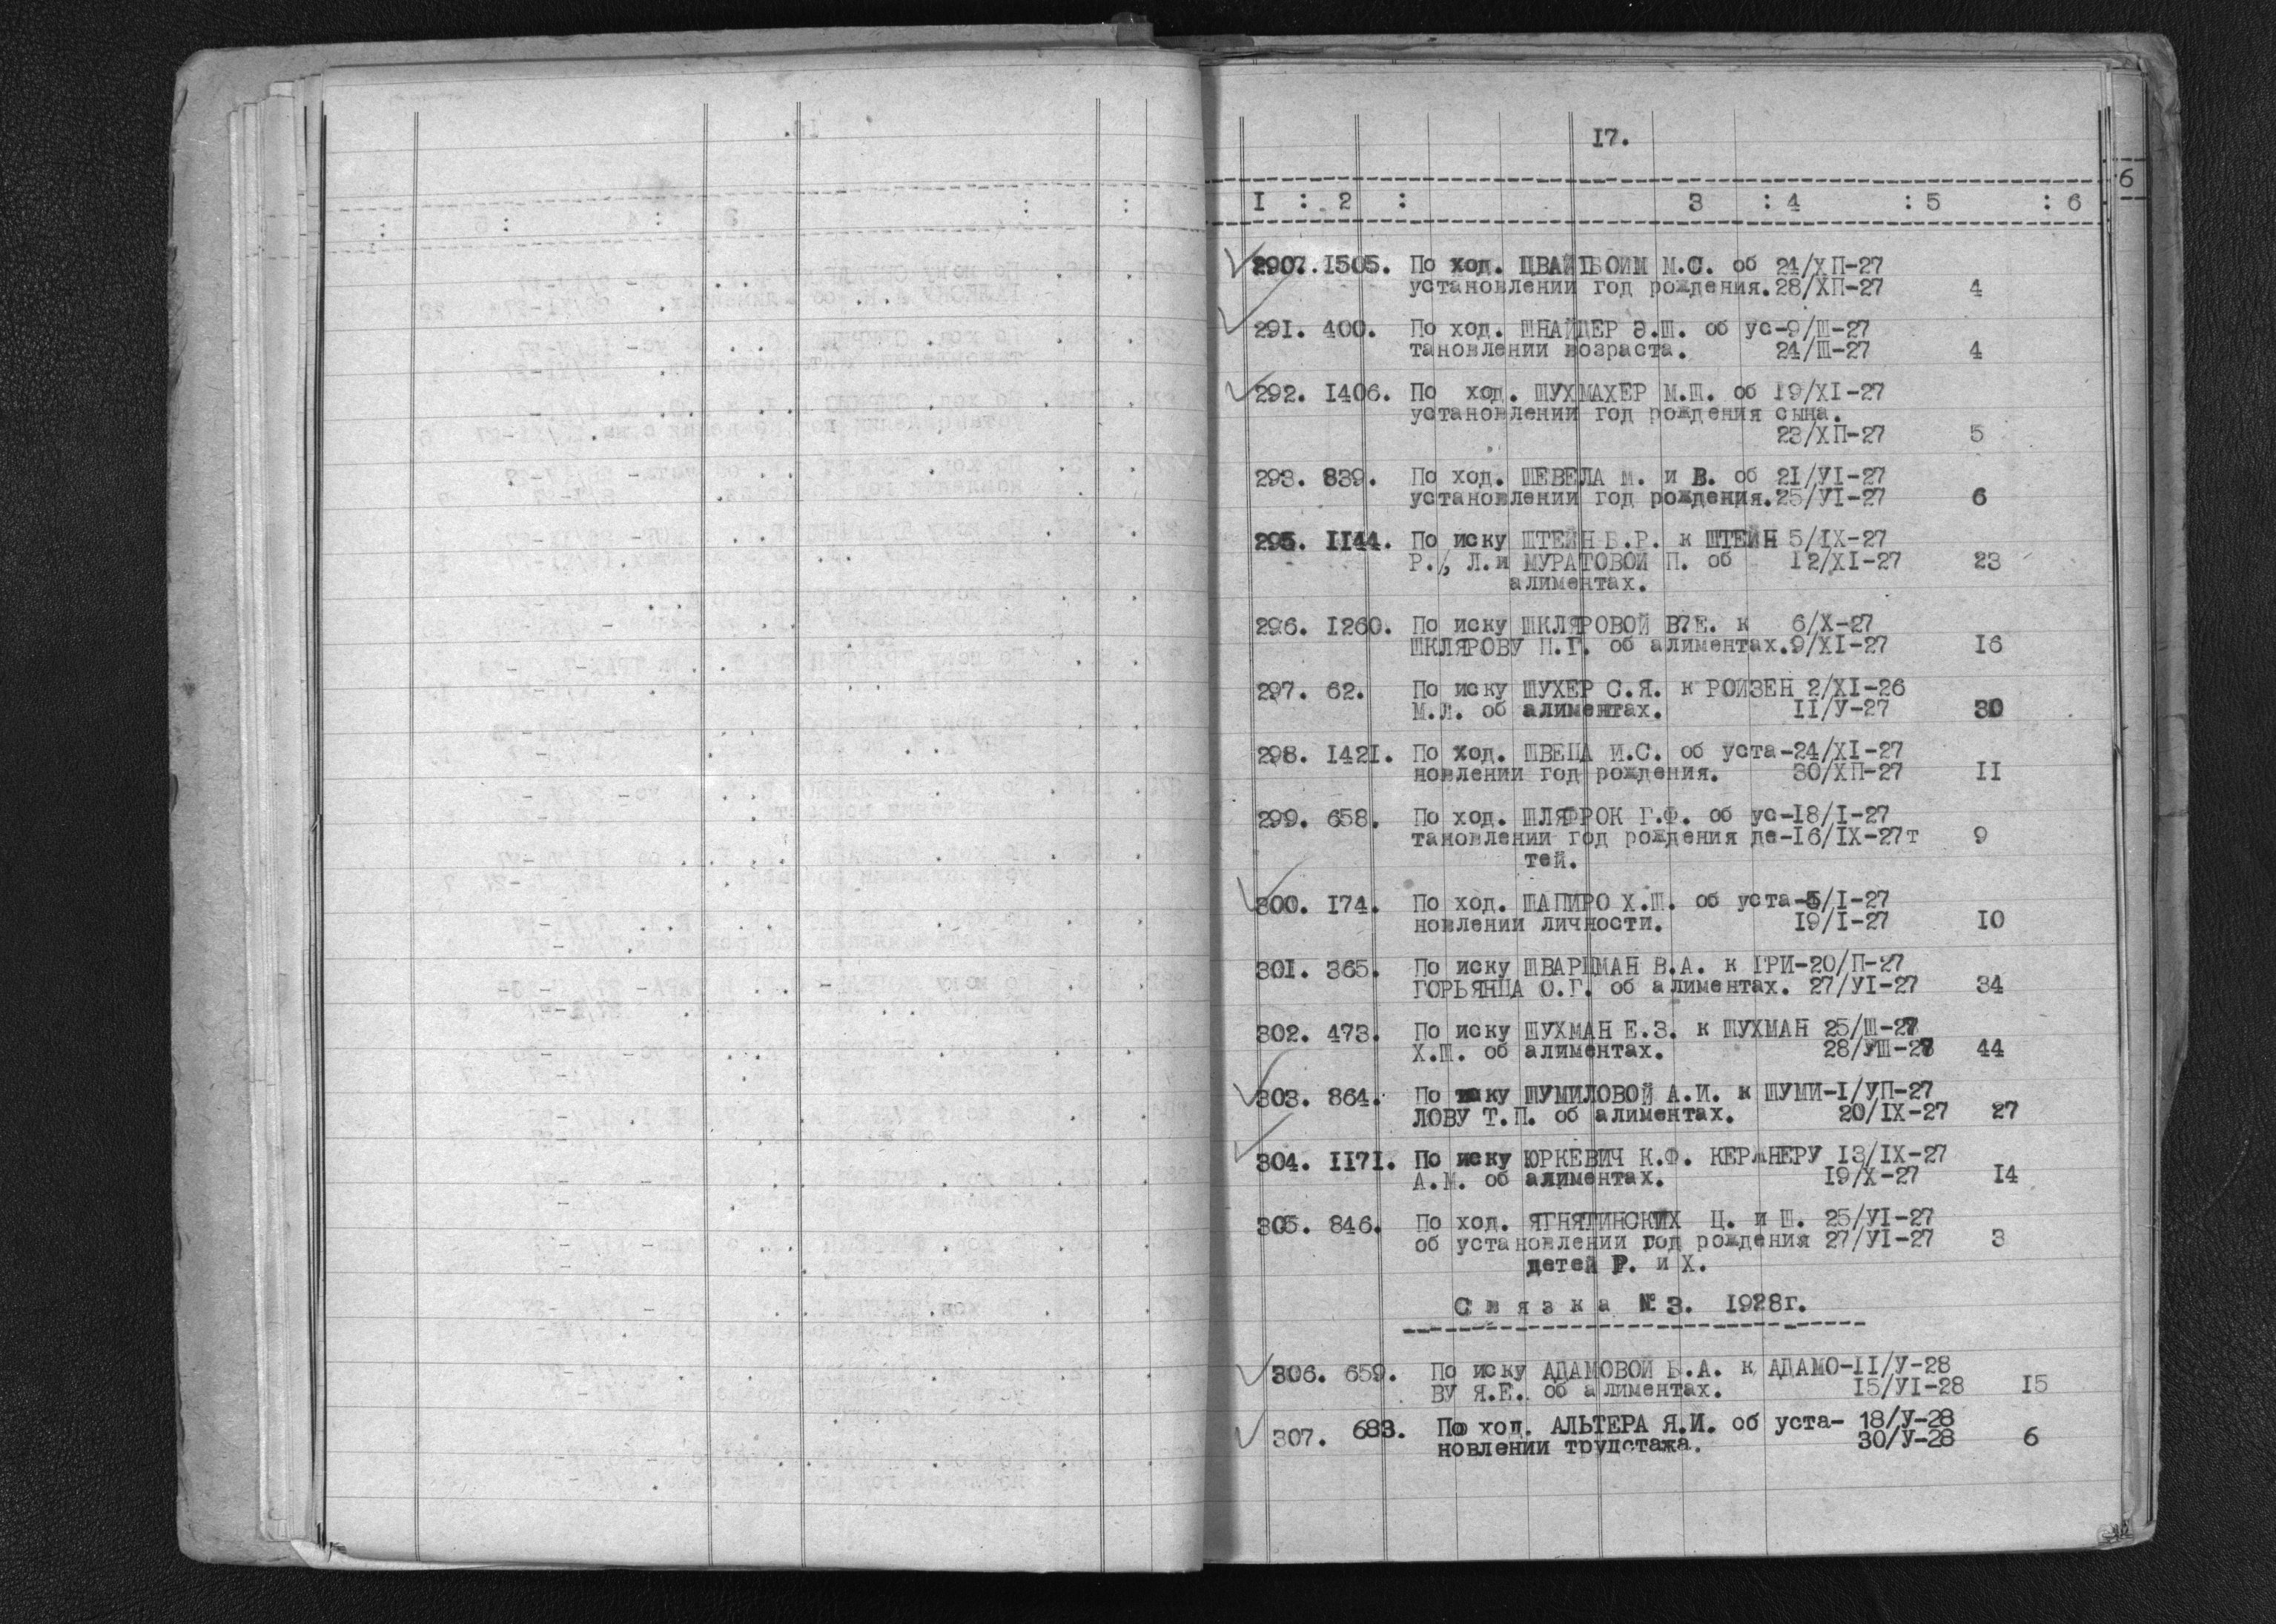 17.
I : 2 : 3 : 4 : 5 : 6
6
2907. 1505. По ход. ЦВАЙГБОЙМ М.С. об 24/ХП-27
установлении год рождения. 28/ХП-27 4
291. 400. По ход. ШНАЙДЕР Э.Ш. об ус-9/Ш-27
тановлении возраста. 24/Ш-27 4
292. I406. По ход. ШУХМАХЕР М.Ш. об I9/XI-27
установлении год рождения сына.
23/ХП-27 5
293. 839. По ход. ШЕВЕЛА М. и В. об 21/УI-27
установлении год рождения. 25/УI-27 6
295. II44. По иску ШТЕЙН Б.Р. к ШТЕЙН 5/IX-27
Р., Л. и МУРАТОВОЙ П. об I2/XI-27 23
алиментах.
296. I260. По иску ШКЛЯРОВОЙ В7Е. к 6/Х-27
ШКЛЯРОВУ П.Г. об алиментах. 9/XI-27 I6
297. 62. По иску ШУХЕР С.Я. к РОЙЗЕН 2/XI-26
М.Л. об алиментах. II/У-27 30
298. I42I. По ход. ШВЕЦА И.С. об уста-24/XI-27
новлении год рождения. 30/ХП-27 II
299. 658. По ход. ШЛЯФРОК Г.Ф. об ус-I8/I-27
тановлении год рождения де-I6/IX-27т 9
тей.
300. I74. По ход. ШАПИРО Х.Ш. об уста-5/I-27
новлении личности. I9/I-27 I0
30I. 365. По иску ШВАРЦМАН В.А. к ГРИ-20/П-27
ГОРЬЯНЦА О.Г. об алиментах. 27/УI-27 34
302. 473. По иску ШУХМАН Е.З. к ШУХМАН 25/Ш-27
Х.Ш. об алиментах. 28/УШ-27 44
303. 864. По иску ШУМИЛОВОЙ А.И. к ШУМИ-I/УП-27
ЛОВУ Т.П. об алиментах. 20/IX-27 27
304. II7I. По иску ЮРКЕВИЧ К.Ф. КЕРЖНЕРУ I3/IX-27
А.М. об алиментах. I9/X-27 I4
305. 846. По ход. ЯГНЯТИНСКИХ Ц. и Ш. 25/УI-27
об установлении год рождения 27/УI-27 3
детей Р. и Х.
С в я з к а № 3. I928г.
306. 659. По иску АДАМОВОЙ Б.А. к АДАМО-II/У-28
ВУ Я.Е. об алиментах. I5/УI-28 I5
307. 683. По ход. АЛЬТЕРА Я.И. об уста- I8/У-28
новлении трудстажа. 30/У-28 6